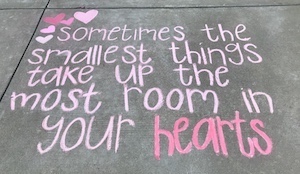 sometimes the
smallest things
take up the
most room in
your hearts